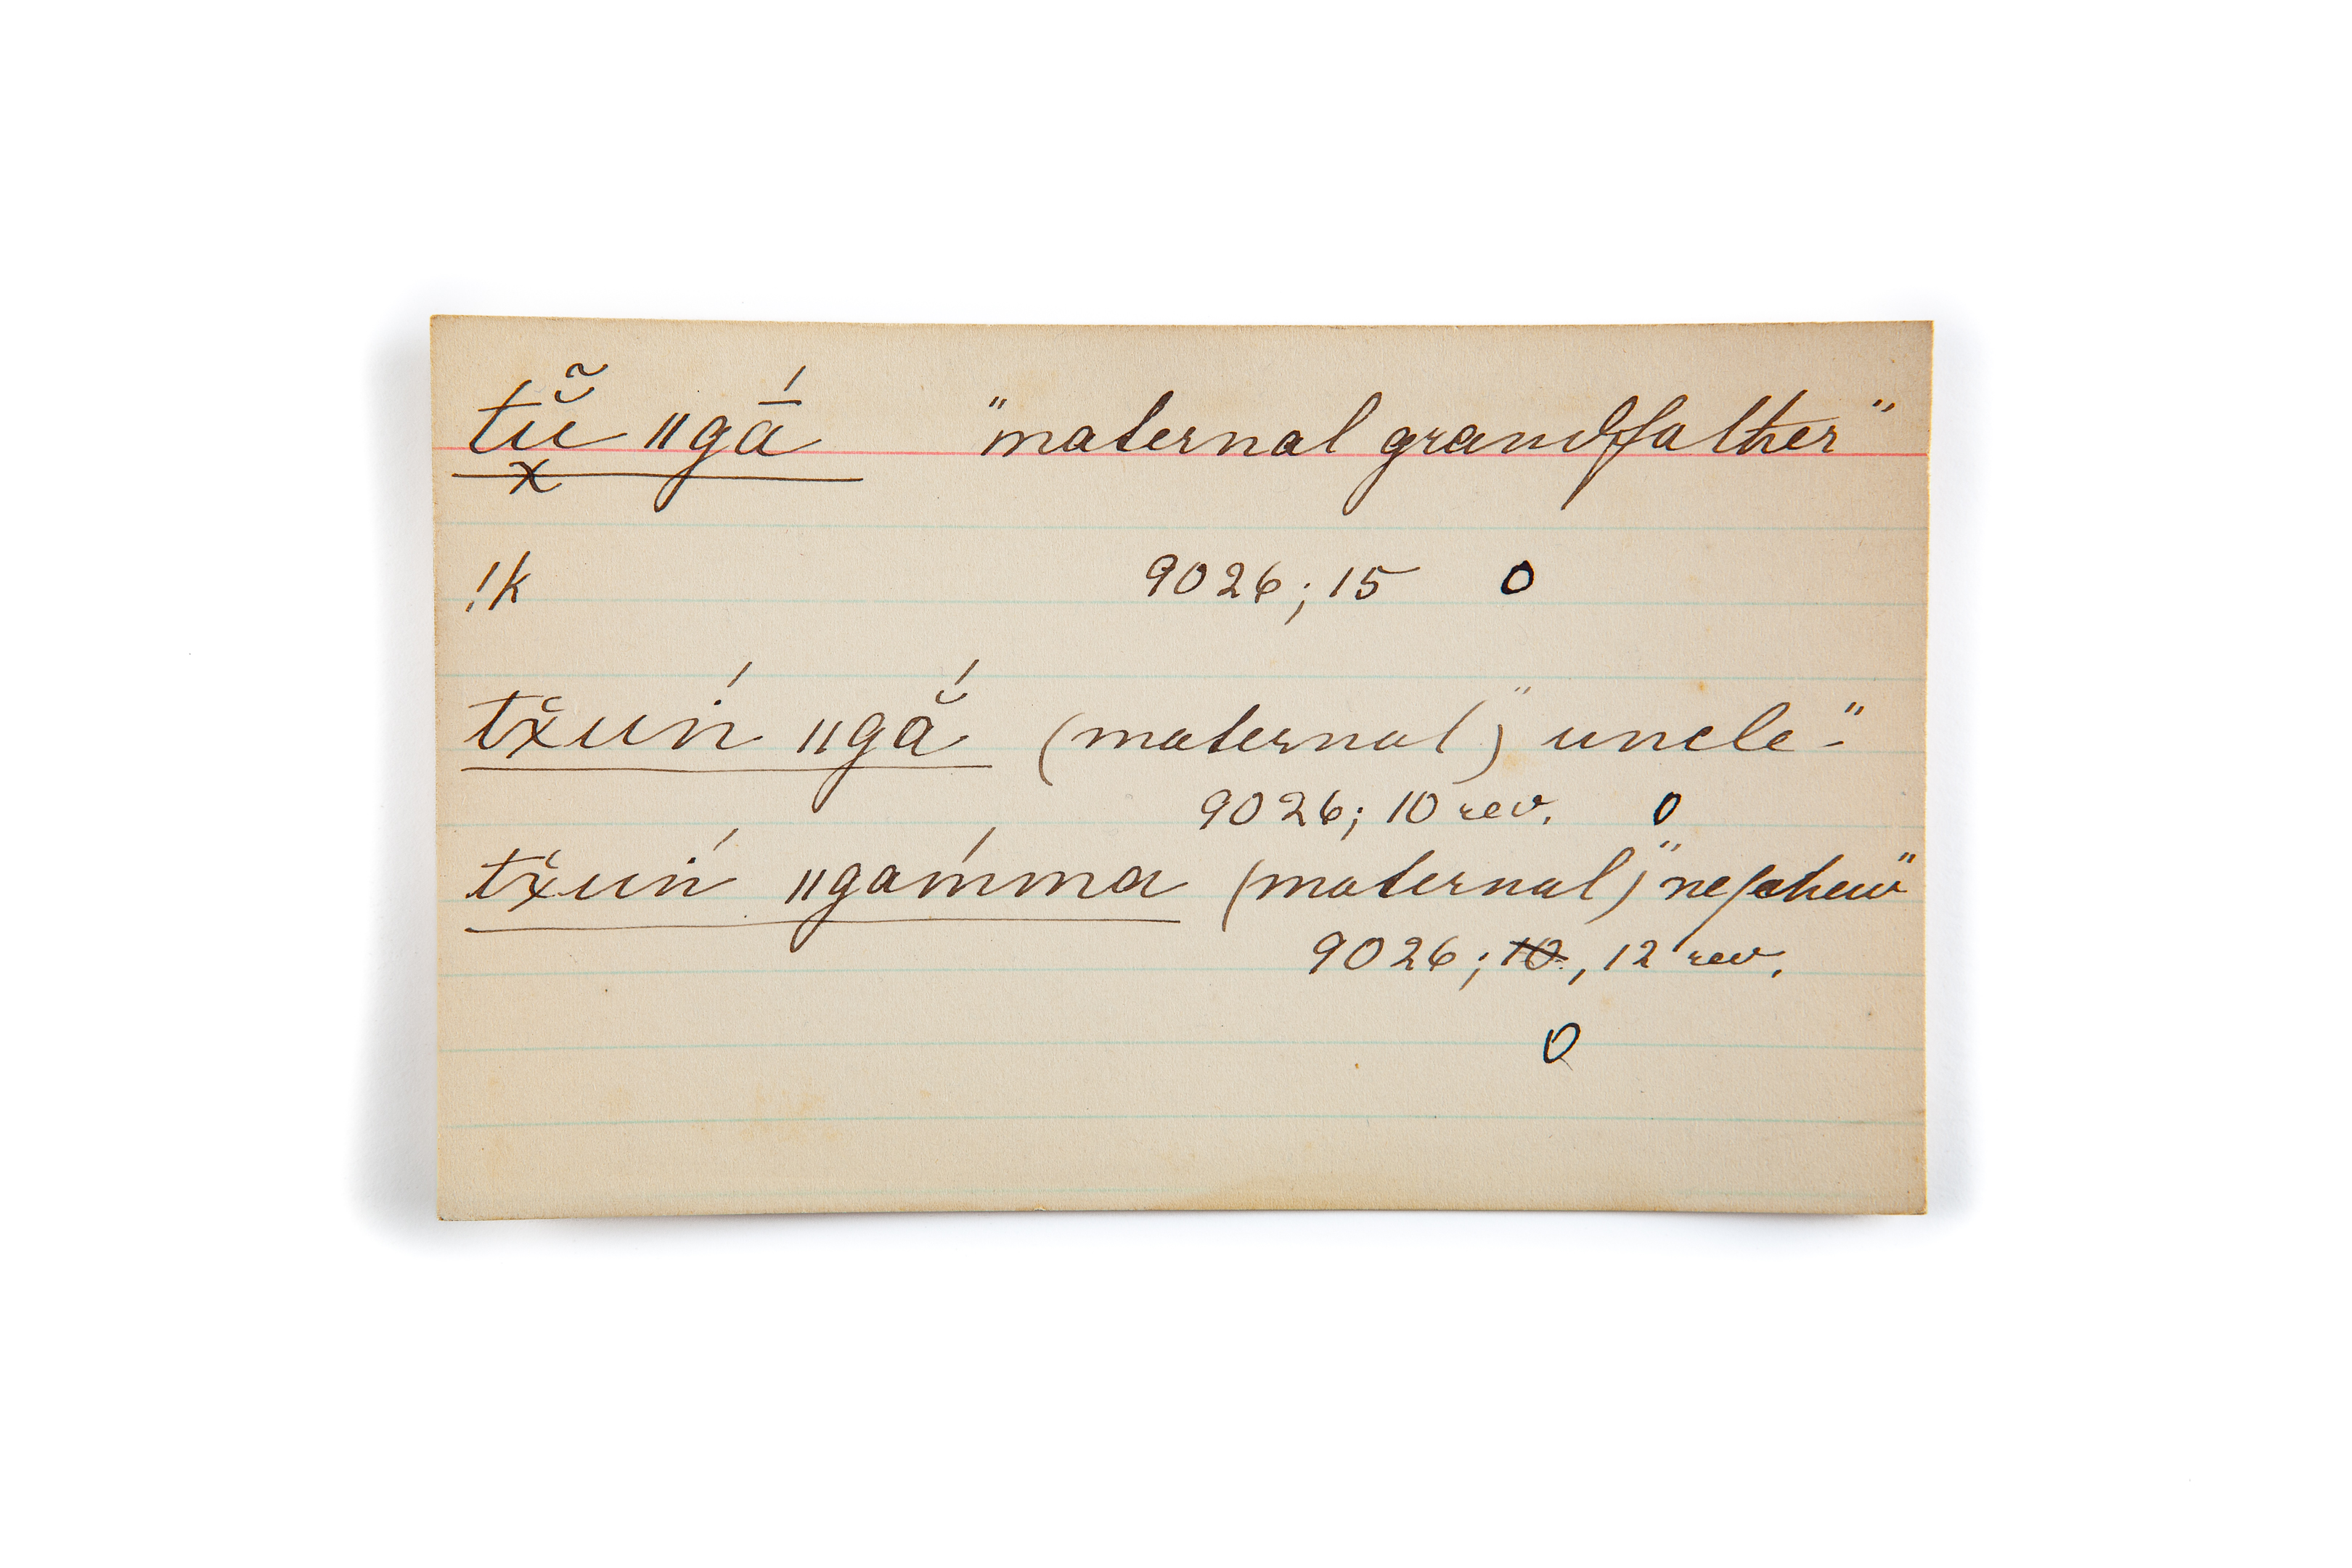 tŭ͓̃ ‖gā́ "maternal grandfather"
!k 9026; 15 0
tx̆uń ‖gắ (maternal) "uncle"
9026; 10 rev. 0
tx̆uń ‖gaḿma (maternal) "nephew"
9026; 10, 12 rev.
0